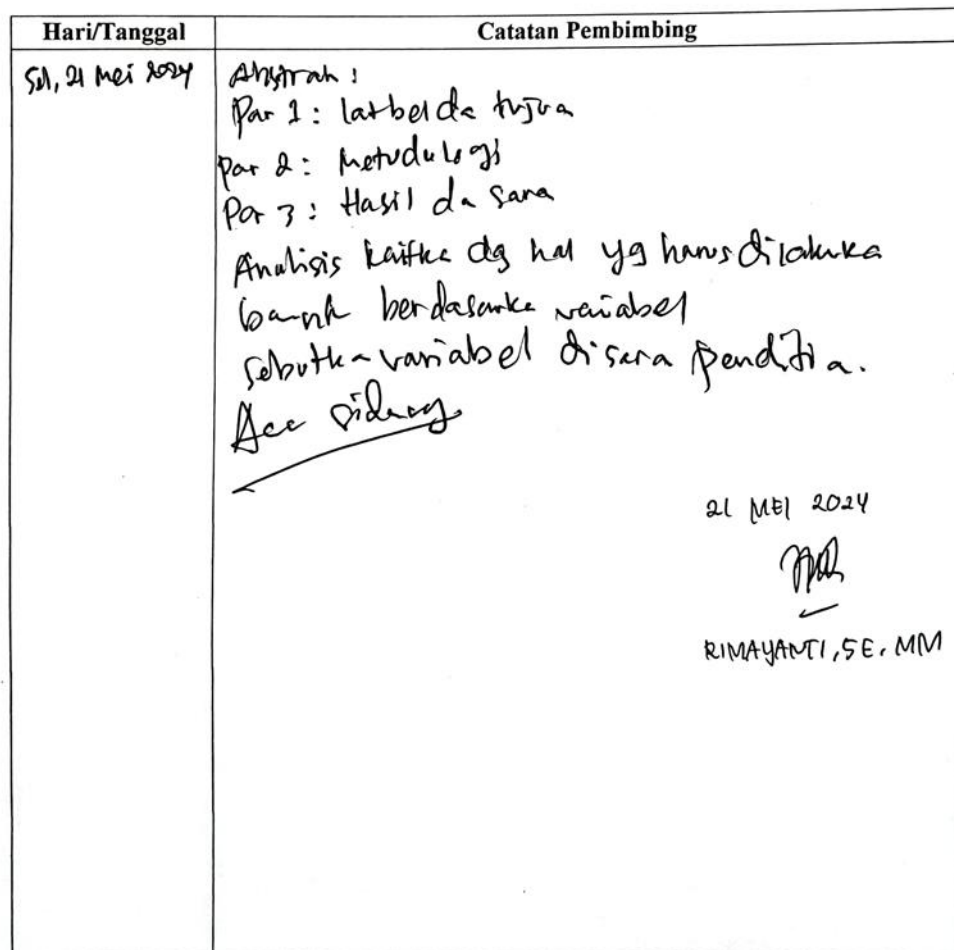 Hari/Tanggal
Catatan Pembimbing
Sel, 21 Mei 2024
Abstrak :
Par 1 : latbel da tujua
Par 2 : Metodologi
Par 3 : Hasil da sara
Analisis kaitka dg hal yg harus dilakuka
bank berdasarka variabel
Sebutka variabel di sara penelitia.
Acc sidang
21 MEI 2024
RIMAYANTI, SE, MM